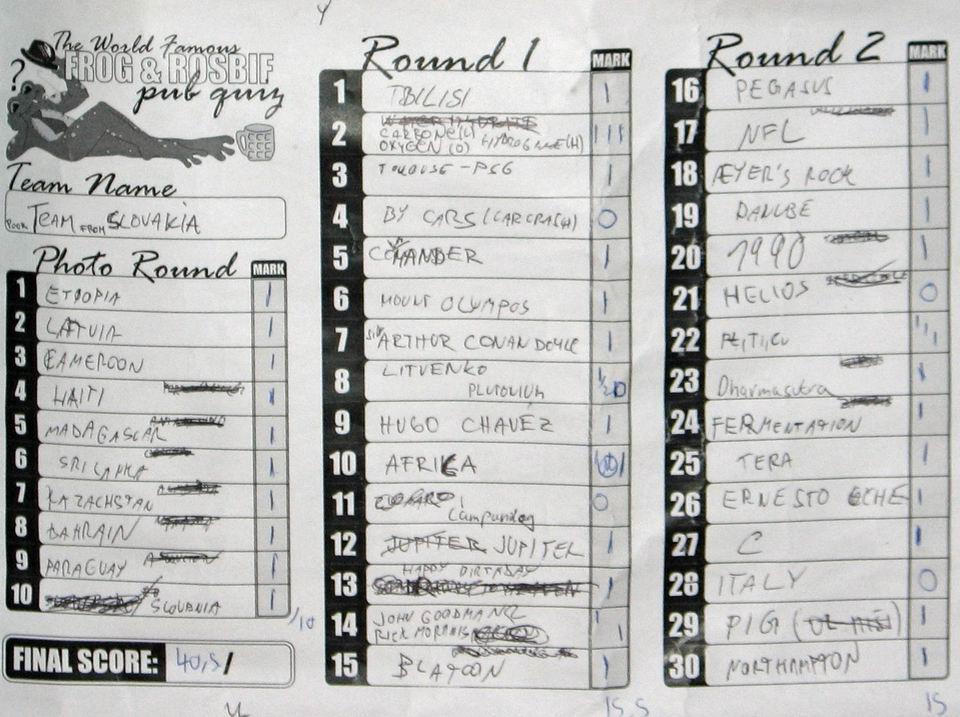 The World Famous
FROG & ROSBIF
pub quiz
Team Name
POOR TEAM FROM SLOVAKIA
Photo Round MARK
1 ETIOPIA 1
2 LATVIA 1
3 CAMEROON 1
4 HAITI 1
5 MADAGASCAR 1
6 SRI LANKA 1
7 KAZACHSTAN 1
8 BAHRAIN 1
9 PARAGUAY 1
10 SLOVENIA 1
/10
FINAL SCORE: 40,5/
Round 1 MARK
1 TBILISI 1
2 WATER HYDRATE
CARBONE(C) HYDROGNE(H)
OXYGEN (O) 111
3 TOULOUSE - PSG
4 BY CARS (CARCRASH) 0
5 COMMANDER 1
6 MOUNT OLYMPOS 1
7 SIR ARTHUR CONAN DOYLE 1
8 LITVENKO
PLUTOLIUM 1/2 0
9 HUGO CHAVÉZ 1
10 AFRIKA 1
11 0
12 JUPITER JUPITEL 1
13 HAPPY BIRTHDAY 1
14 JOHN GOODMAN
RICK MORANIS 1 1
15 BLATOON 1
15,5
Round 2 MARK
16 PEGASUS 1
17 NFL 1
18 ÆYER'S ROCK 1
19 DANUBE 1
20 1990 1
21 HELIOS 0
22
23 Dharmasutra 1
24 FERMENTATION 1
25 TERA 1
26 ERNESTO CHE 1
27 C 1
28 ITALY 0
29 PIG 1
30 NORTHAMPTON 1
15